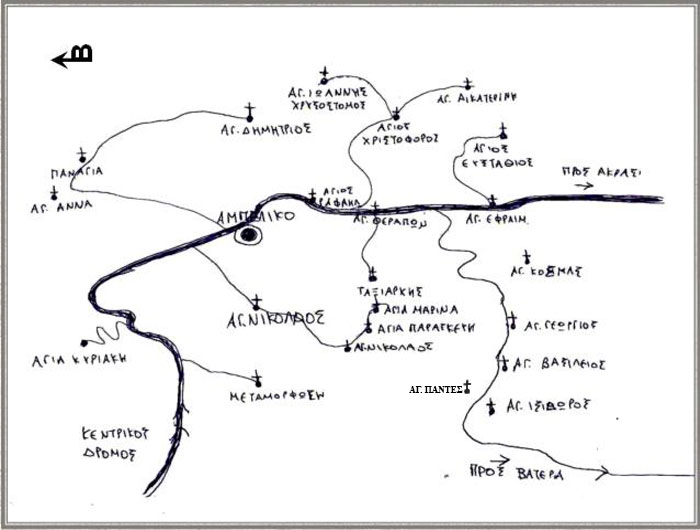 Β
ΑΓ. ΙΩΑΝΝΗΣ
ΧΡΥΣΟΣΤΟΜΟΣ
ΑΓ. ΑΙΚΑΤΕΡΙΝΗ
ΑΓ. ΔΗΜΗΤΡΙΟΣ
ΑΓΙΟΣ
ΧΡΙΣΤΟΦΟΡΟΣ
ΑΓΙΟΣ
ΕΥΣΤΑΘΙΟΣ
ΠΑΝΑΓΙΑ
ΠΡΟΣ ΑΚΡΑΣΙ
ΑΓ. ΑΝΝΑ
ΑΓΙΟΣ
ΡΑΦΑΗΛ
ΑΜΠΕΛΙΚΟ
ΑΓ. ΘΕΡΑΠΩΝ
ΑΓ. ΕΦΡΑΙΜ
ΑΓ. ΚΟΣΜΑΣ
ΤΑΞΙΑΡΚΗΣ
ΑΓΙΑ ΜΑΡΙΝΑ
ΑΓ. ΝΙΚΟΛΑΟΣ
ΑΓΙΑ ΠΑΡΑΣΚΕΥΗ
ΑΓ. ΓΕΩΡΓΙΟΣ
ΑΓ. ΝΙΚΟΛΑΟΣ
ΑΓΙΑ ΚΥΡΙΑΚΗ
ΑΓ. ΒΑΣΙΛΕΙΟΣ
ΜΕΤΑΜΟΡΦΩΣΗ
ΑΓ. ΠΑΝΤΕΣ
ΑΓ. ΙΣΙΔΩΡΟΣ
ΚΕΝΤΡΙΚΟΣ
ΔΡΟΜΟΣ
ΠΡΟΣ ΒΑΤΕΡΑ